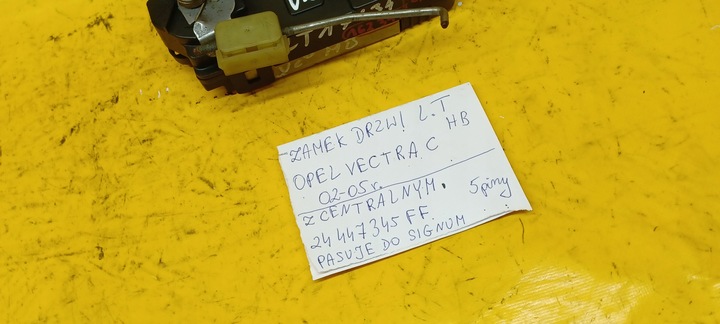 ZAMEK DRZWI L.T
HB
OPEL VECTRA C
02-05r.
Z CENTRALNYM. 5piny
24 447 345 FF.
PASUJE DO SIGNUM